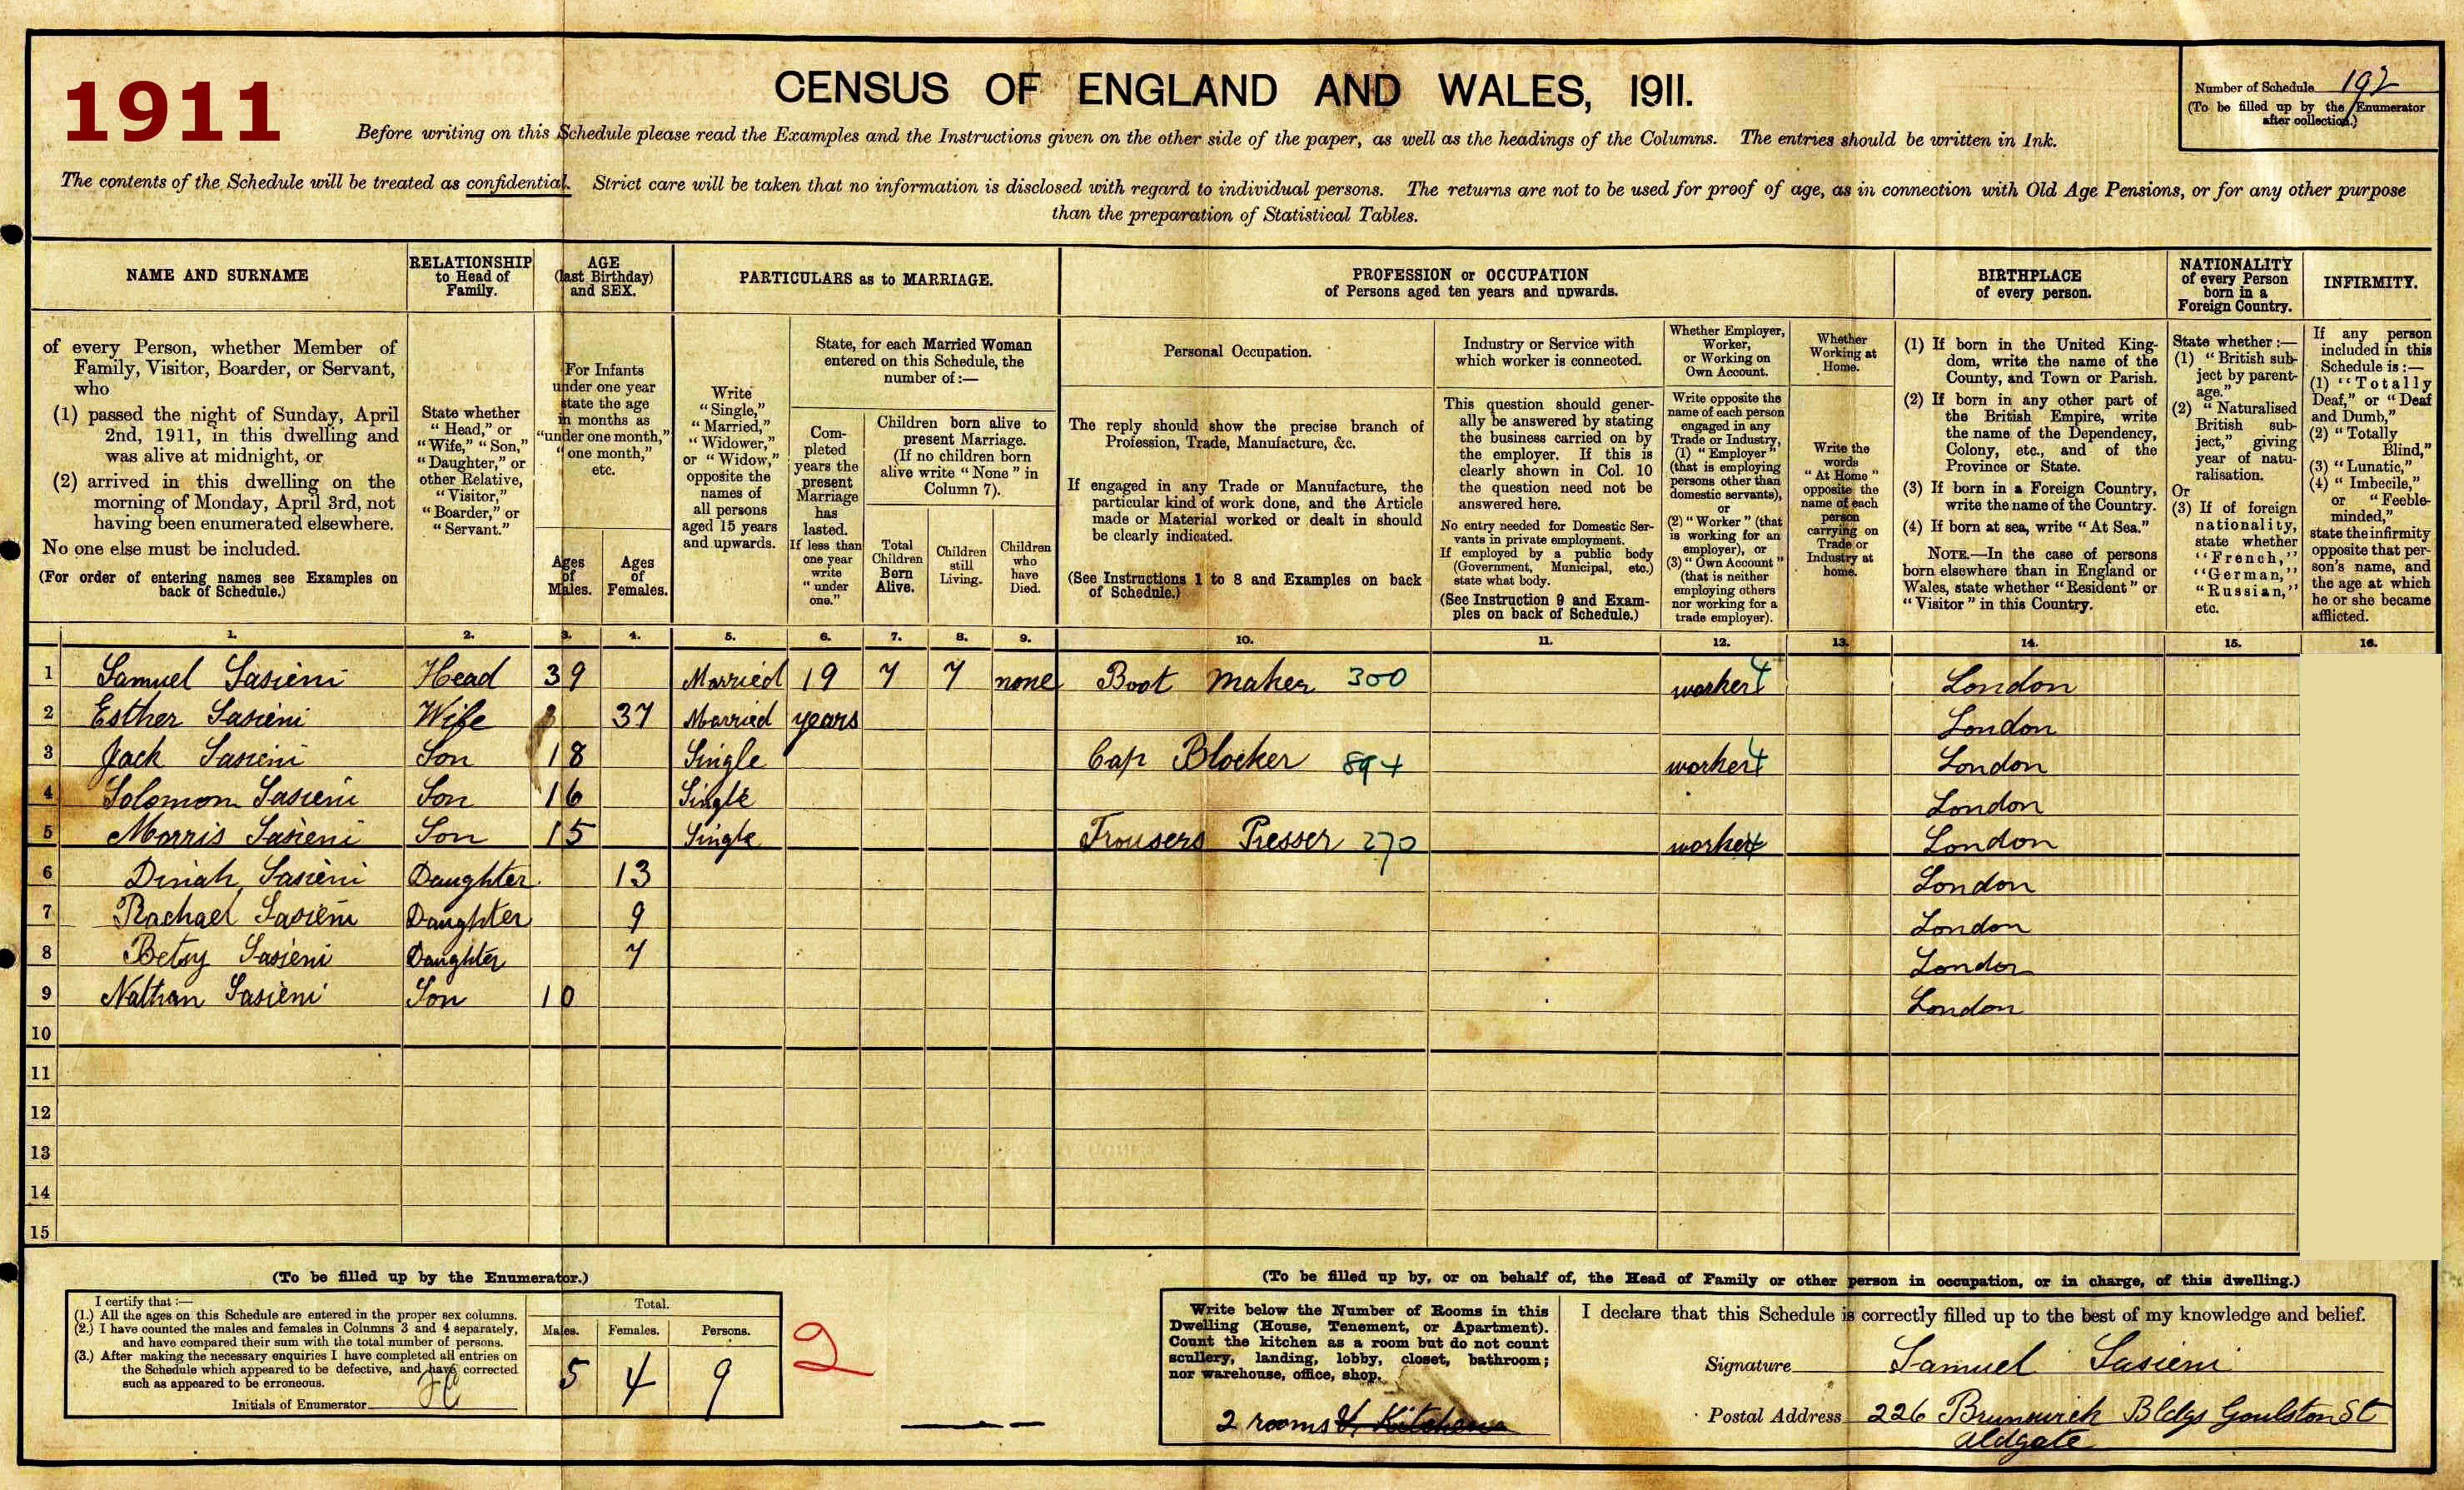 1911
CENSUS OF ENGLAND AND WALES, 1911.
Number of Schedule 192
(To be filled up by the Enumerator
after collection.)
Before writing on this Schedule please read the Examples and the Instructions given on the other side of the paper, as well as the headings of the Columns. The entries should be written in Ink.
The contents of the Schedule will be treated as confidential. Strict care will be taken that no information is disclosed with regard to individual persons. The returns are not to be used for proof of age, as in connection with Old Age Pensions, or for any other purpose
than the preparation of Statistical Tables.
NAME AND SURNAME
of every Person, whether Member of
Family, Visitor, Boarder, or Servant,
who
(1) passed the night of Sunday, April
2nd, 1911, in this dwelling and
was alive at midnight, or
(2) arrived in this dwelling on the
morning of Monday, April 3rd, not
having been enumerated elsewhere.
No one else must be included.
(For order of entering names see Examples on
back of Schedule.)
RELATIONSHIP
to Head of
Family.
State whether
"Head," or
"Wife," "Son,"
"Daughter," or
other Relative,
"Visitor,"
"Boarder," or
"Servant."
AGE
(last Birthday)
and SEX.
For Infants
under one year
state the age
in months as
"under one month,"
"one month,"
etc.
Ages
of
Males.
Ages
of
Females.
PARTICULARS as to MARRIAGE.
Write
"Single,"
"Married,"
"Widower,"
or "Widow,"
opposite the
names of
all persons
aged 15 years
and upwards.
State, for each Married Woman
entered on this Schedule, the
number of:—
Com-
pleted
years the
present
Marriage
has
lasted.
If less than
one year
write
"under
one."
Children born alive to
present Marriage.
(If no children born
alive write "None" in
Column 7).
Total
Children
Born
Alive.
Children
still
Living.
Children
who
have
Died.
PROFESSION or OCCUPATION
of Persons aged ten years and upwards.
Personal Occupation.
The reply should show the precise branch of
Profession, Trade, Manufacture, &c.
If engaged in any Trade or Manufacture, the
particular kind of work done, and the Article
made or Material worked or dealt in should
be clearly indicated.
(See Instructions 1 to 8 and Examples on back
of Schedule.)
Industry or Service with
which worker is connected.
This question should gener-
ally be answered by stating
the business carried on by
the employer. If this is
clearly shown in Col. 10
the question need not be
answered here.
No entry needed for Domestic Ser-
vants in private employment.
If employed by a public body
(Government, Municipal, etc.)
state what body.
(See Instruction 9 and Exam-
ples on back of Schedule.)
Whether Employer,
Worker,
or Working on
Own Account.
Write opposite the
name of each person
engaged in any
Trade or Industry,
(1) "Employer"
(that is employing
persons other than
domestic servants),
or
(2) "Worker" (that
is working for an
employer), or
(3) "Own Account"
(that is neither
employing others
nor working for a
trade employer).
Whether
Working at
Home.
Write the
words
"At Home"
opposite the
name of each
person
carrying on
Trade or
Industry at
home.
BIRTHPLACE
of every person.
(1) If born in the United King-
dom, write the name of the
County, and Town or Parish.
(2) If born in any other part of
the British Empire, write
the name of the Dependency,
Colony, etc., and of the
Province or State.
(3) If born in a Foreign Country,
write the name of the Country.
(4) If born at sea, write "At Sea."
NOTE.—In the case of persons
born elsewhere than in England or
Wales, state whether "Resident" or
"Visitor" in this Country.
NATIONALITY
of every Person
born in a
Foreign Country.
State whether:—
(1) "British sub-
ject by parent-
age."
(2) "Naturalised
British sub-
ject," giving
year of natu-
ralisation.
Or
(3) If of foreign
nationality,
state whether
"French,"
"German,"
"Russian,"
etc.
INFIRMITY.
If any person
included in this
Schedule is:—
(1) "Totally
Deaf," or "Deaf
and Dumb,"
(2) "Totally
Blind,"
(3) "Lunatic,"
(4) "Imbecile,"
or "Feeble-
minded,"
state the infirmity
opposite that per-
son's name, and
the age at which
he or she became
afflicted.
1. 2. 3. 4. 5. 6. 7. 8. 9. 10. 11. 12. 13. 14. 15. 16.
1 Samuel Sasieni Head 39 Married 19 7 7 none Boot maker 300 worker 4 London
2 Esther Sasieni Wife 37 Married years London
3 Jack Sasieni Son 18 Single Cap Blocker 894 worker 4 London
4 Solomon Sasieni Son 16 Single London
5 Morris Sasieni Son 15 Single Trousers Presser 270 worker 4 London
6 Dinah Sasieni Daughter 13 London
7 Rachael Sasieni Daughter 9 London
8 Betsy Sasieni Daughter 7 London
9 Nathan Sasieni Son 10 London
10
11
12
13
14
15
(To be filled up by the Enumerator.)
I certify that:—
(1.) All the ages on this Schedule are entered in the proper sex columns.
(2.) I have counted the males and females in Columns 3 and 4 separately,
and have compared their sum with the total number of persons.
(3.) After making the necessary enquiries I have completed all entries on
the Schedule which appeared to be defective, and have corrected
such as appeared to be erroneous.
Initials of Enumerator
Total.
Males. Females. Persons.
5 4 9
2
(To be filled up by, or on behalf of, the Head of Family or other person in occupation, or in charge, of this dwelling.)
Write below the Number of Rooms in this
Dwelling (House, Tenement, or Apartment).
Count the kitchen as a room but do not count
scullery, landing, lobby, closet, bathroom;
nor warehouse, office, shop.
2 rooms & Kitchen
I declare that this Schedule is correctly filled up to the best of my knowledge and belief.
Signature Samuel Sasieni
Postal Address 226 Brunswick Bldgs Goulston St
Aldgate